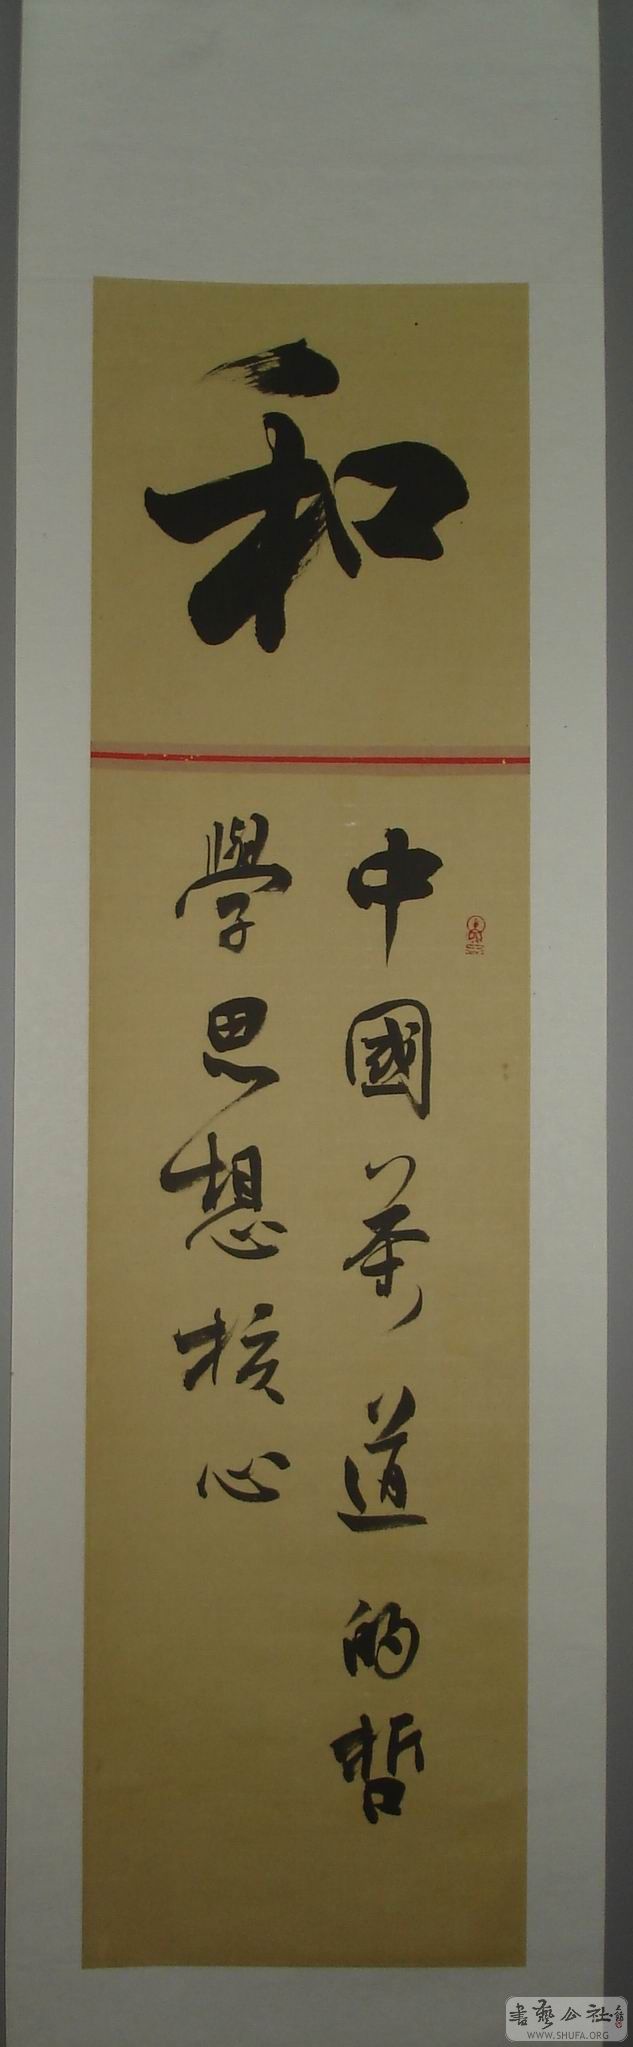 和
中國茶道的哲
學思想核心
書藝公社
WWW.SHUFA.ORG